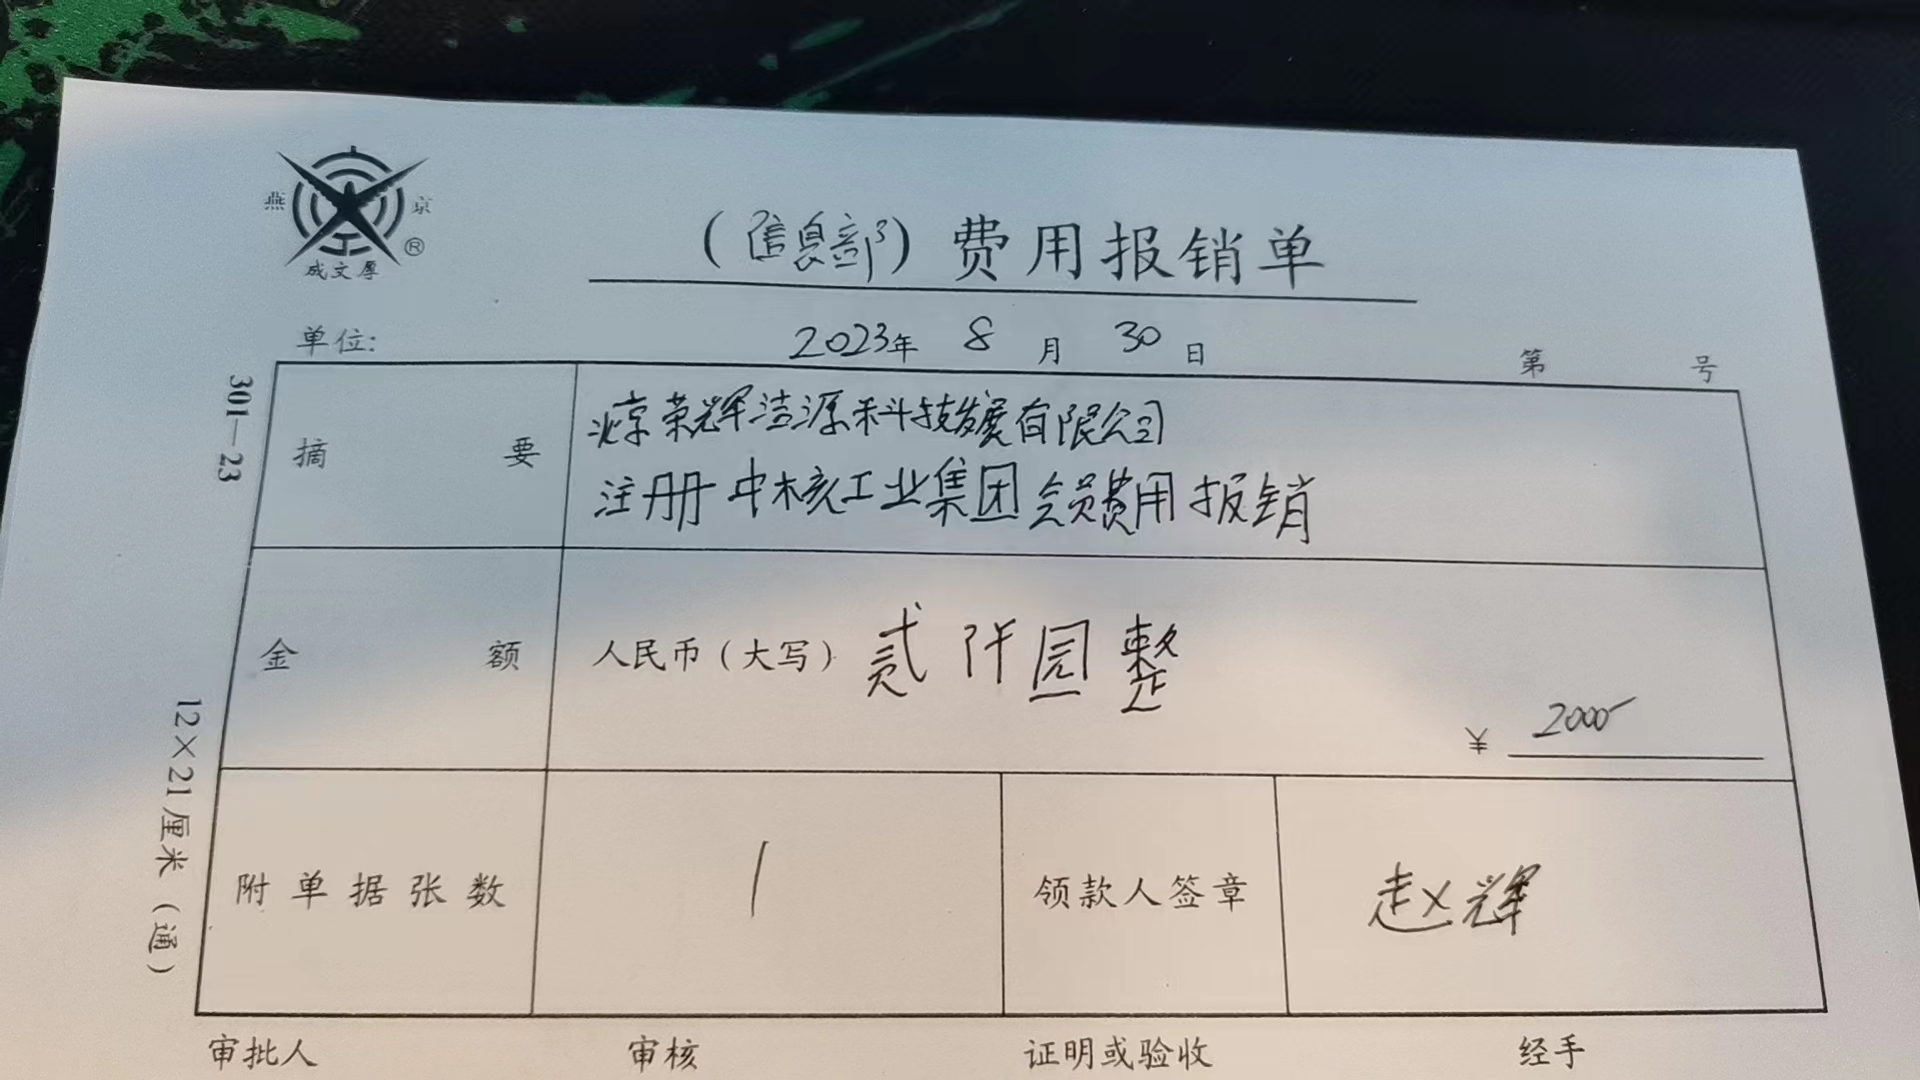 燕 京
®
成文厚
（信息部）费用报销单
单位: 2023年 8 月 30 日 第 号
301—23
12×21厘米（通）
摘 要 北京荣辉洁源科技发展有限公司
注册中核工业集团会员费用报销
金 额 人民币（大写）贰仟圆整
¥ 2000
附单据张数 1 领款人签章 赵辉
审批人 审核 证明或验收 经手